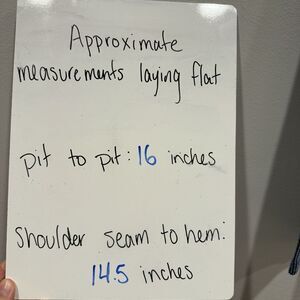 Approximate
measurements laying flat
pit to pit: 16 inches
Shoulder seam to hem:
14.5 inches